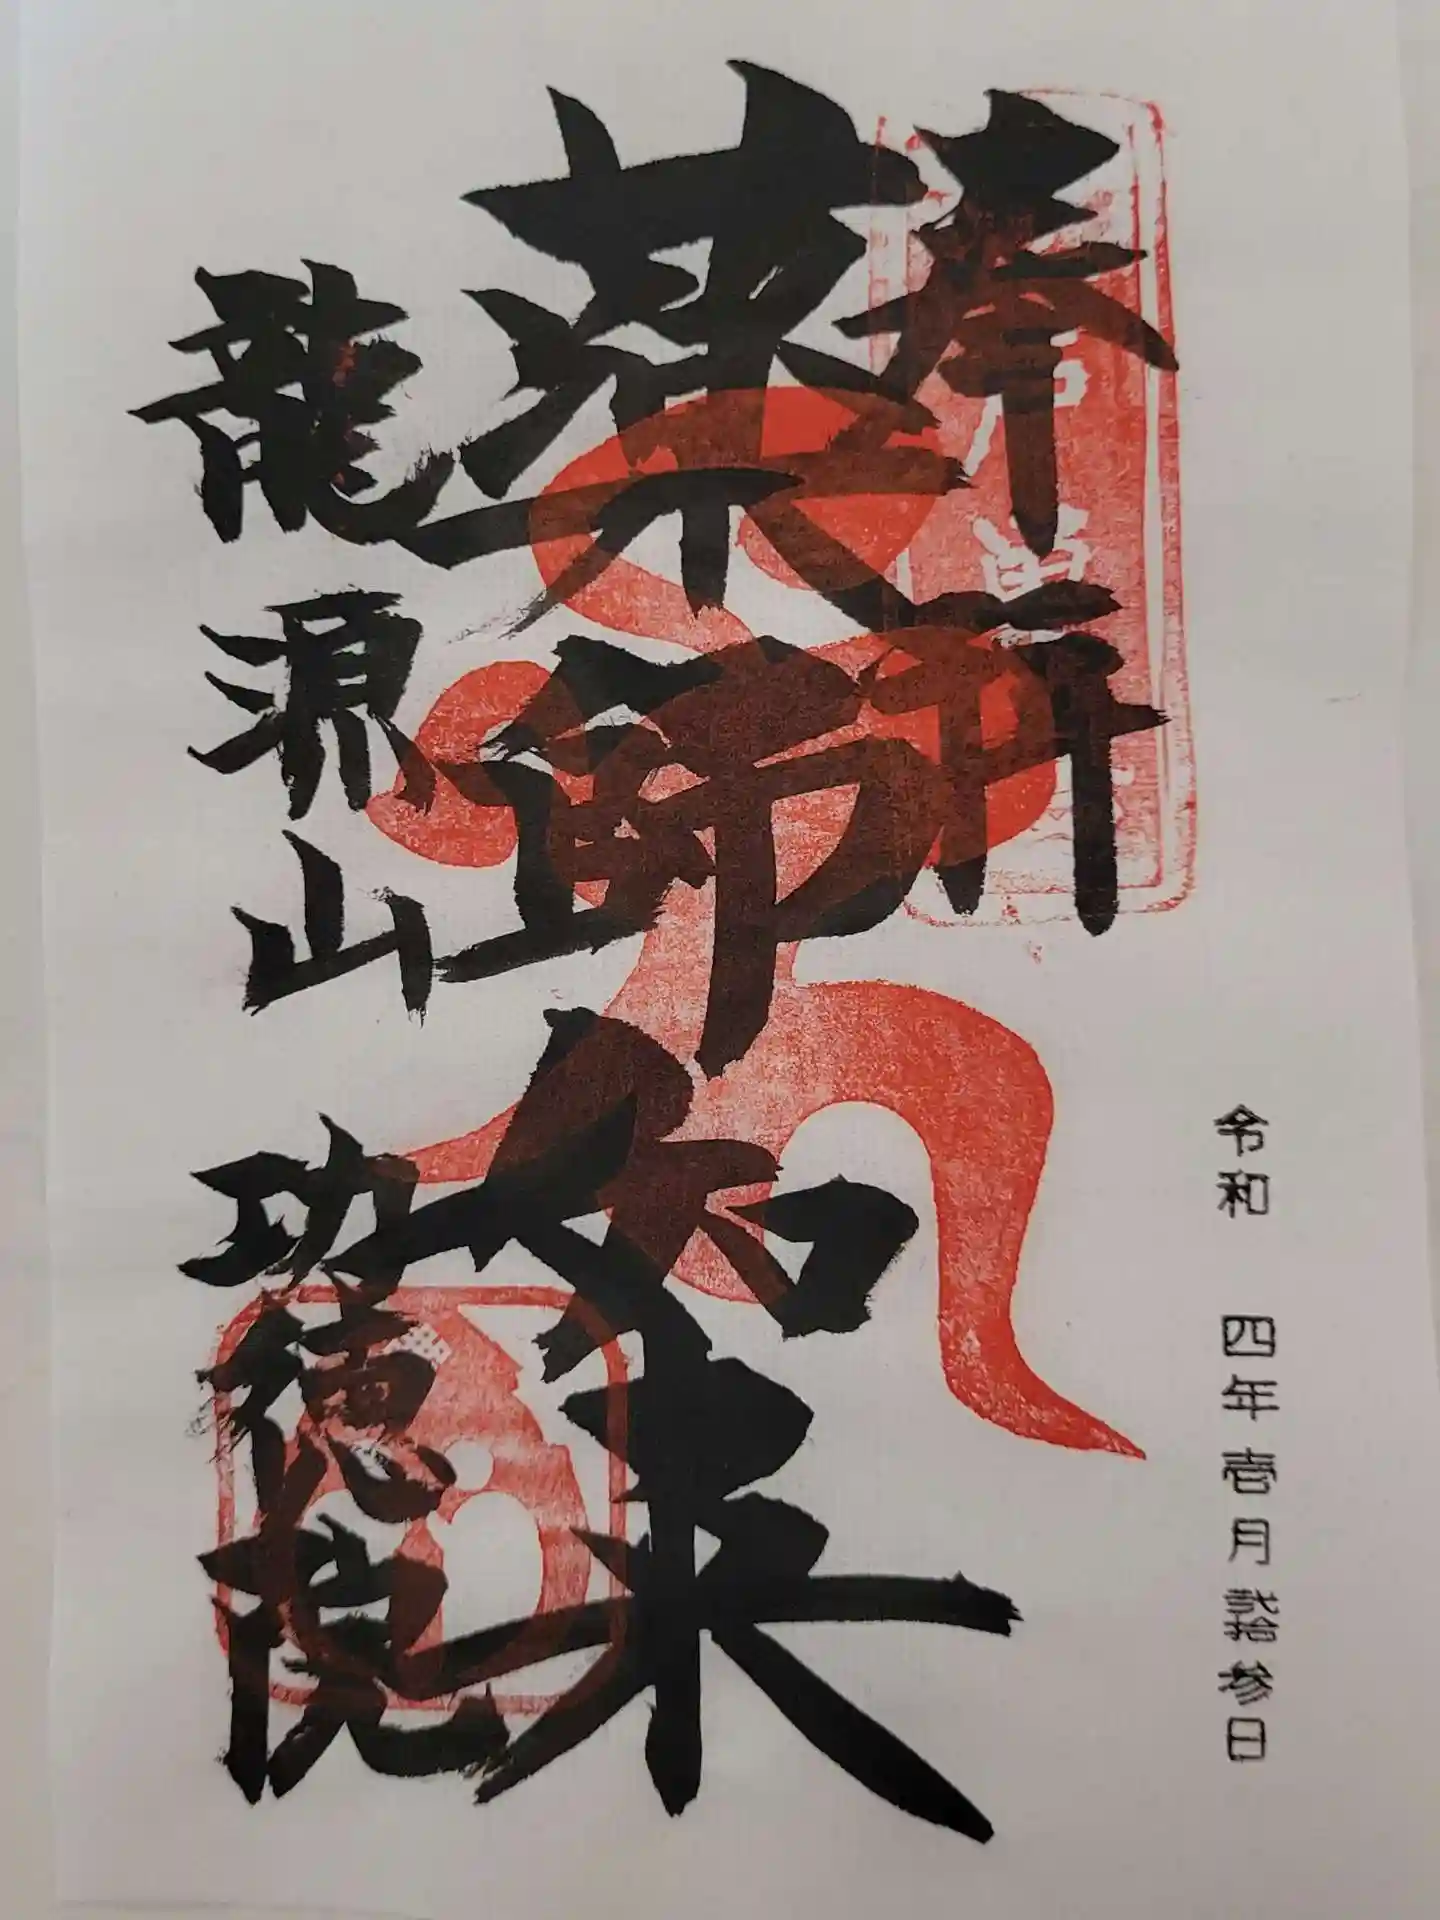 令和 四年壱月弐拾参日
奉祈
薬師如来
龍源山 功徳院